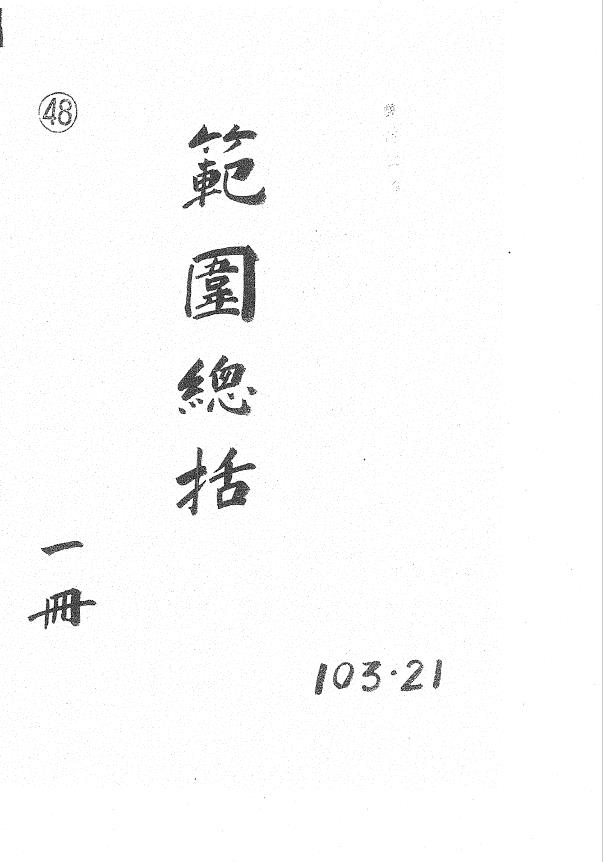 範圍總括
㊽
一冊
103·21